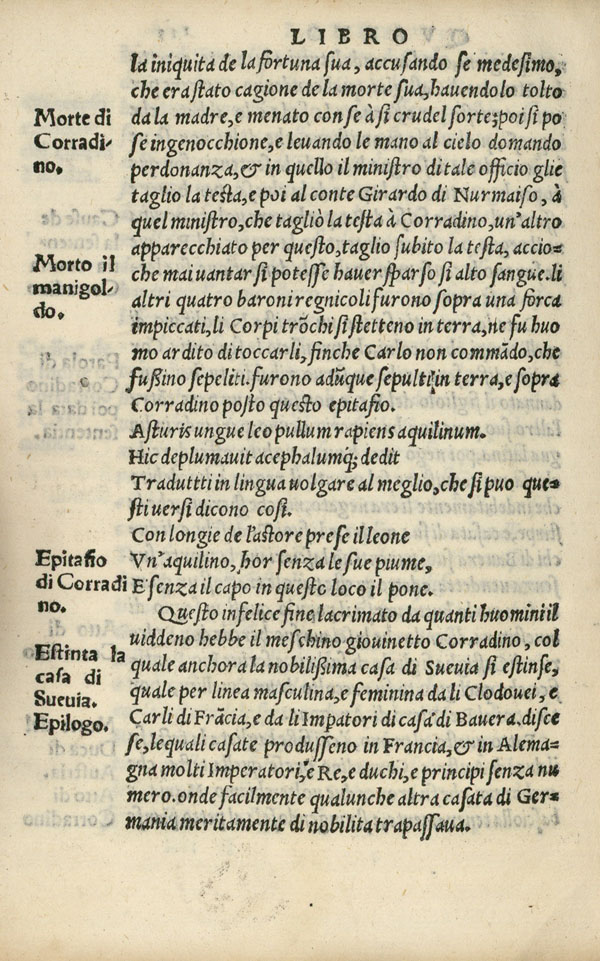 LIBRO
la iniquita de la fortuna sua, accusando se medesimo,
che era stato cagione de la morte sua, hauendolo tolto
Morte di
Corradi-
no.
da la madre, e menato con se à si crudel sorte; poi si po
se ingenocchione, e leuando le mano al cielo domando
perdonanza, & in quello il ministro di tale officio glie
taglio la testa, e poi al conte Girardo di Nurmaiso, à
quel ministro, che tagliò la testa à Corradino, un'altro
apparecchiato per questo, taglio subito la testa, accio=
Morto il
manigol-
do.
che mai uantar si potesse hauer sparso si alto sangue. li
altri quatro baroni regnicoli furono sopra una forca
impiccati, li Corpi trōchi si stetteno in terra, ne fu huo
mo ardito di toccarli, finche Carlo non commādo, che
fussino sepeliti. furono adūque sepulti in terra, e sopra
Corradino posto questo epitafio.
Asturis ungue leo pullum rapiens aquilinum.
Hic deplumauit acephalumq; dedit
Traduttti in lingua uolgare al meglio, che si puo que=
sti uersi dicono cosi.
Con longie de l'astore prese il leone
Epitafio
di Corradi
no.
Vn'aquilino, hor senza le sue piume,
E senza il capo in questo loco il pone.
Questo infelice fine lacrimato da quanti huomini il
uiddeno hebbe il meschino giouinetto Corradino, col
Estinta la
casa di
Sueuia.
Epilogo.
quale anchora la nobilissima casa di Sueuia si estinse,
quale per linea masculina, e feminina da li Clodouei, e
Carli di Frācia, e da li Impatori di casa di Bauera disce
se, le quali casate produsseno in Francia, & in Alema=
gna molti Imperatori, e Re, e duchi, e principi senza nu
mero. onde facilmente qualunche altra casata di Ger=
mania meritamente di nobilita trapassaua.